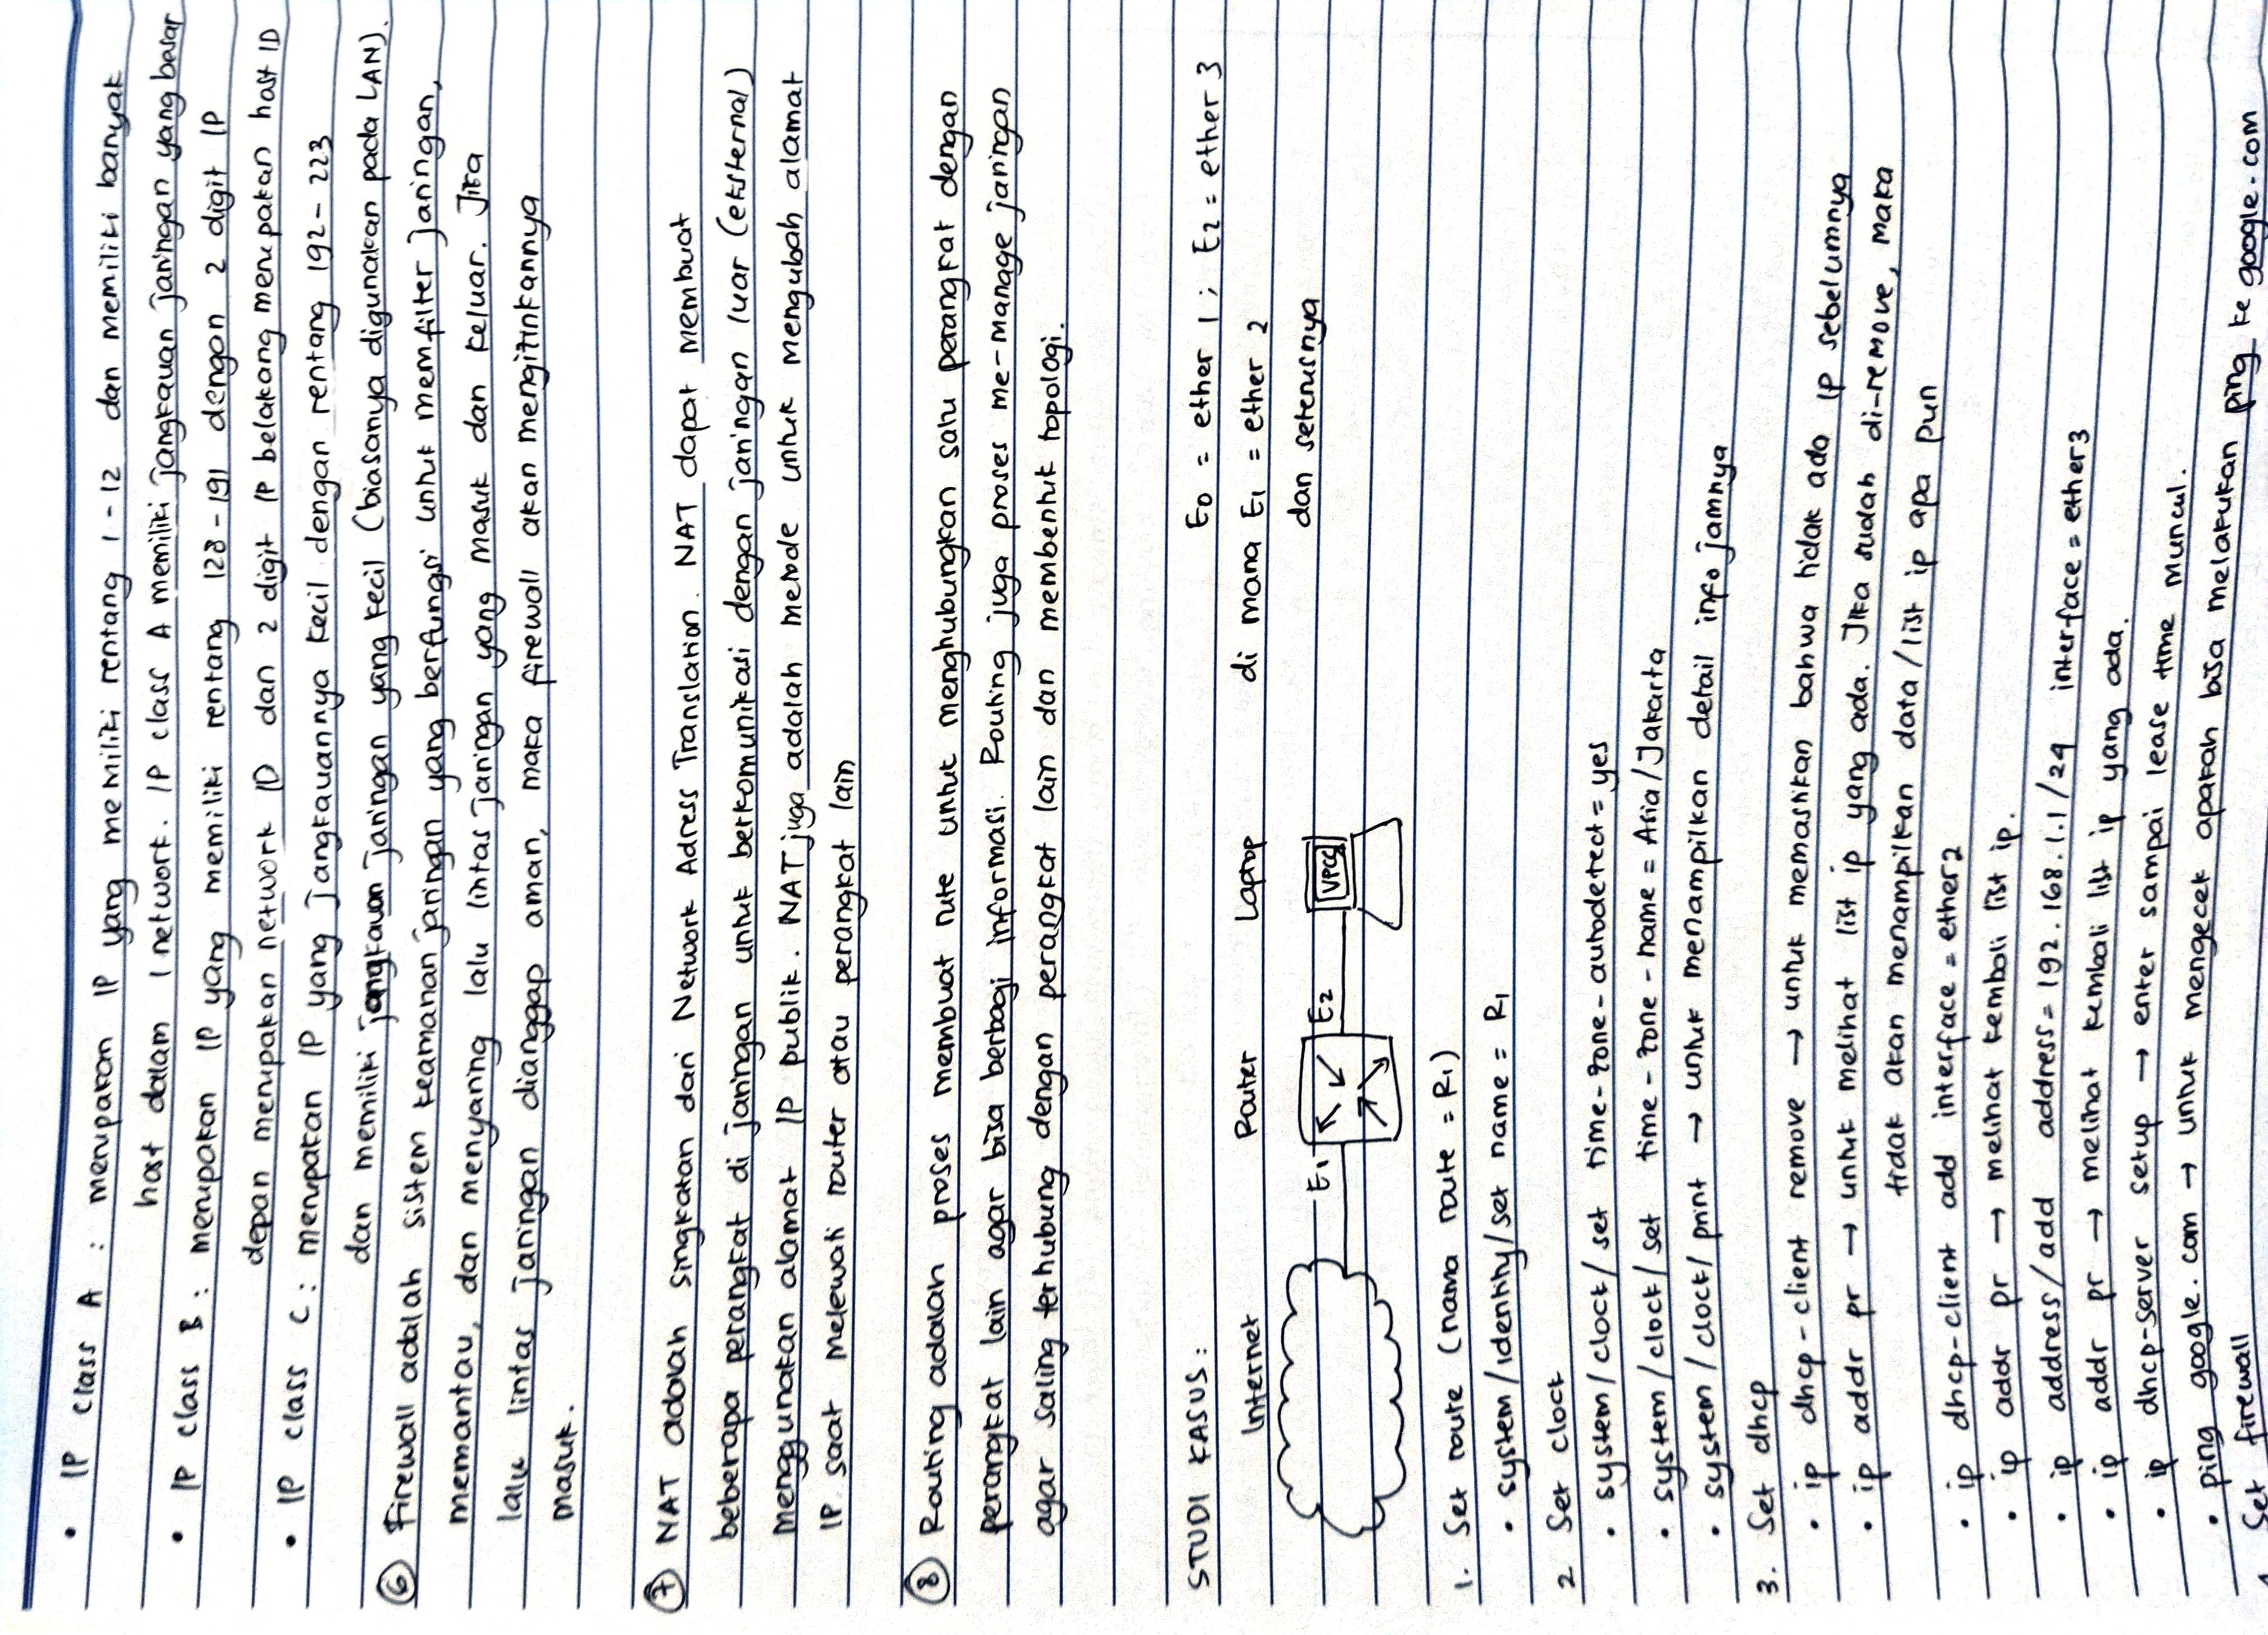 • IP class A : merupakan IP yang memiliki rentang 1 - 12 dan memiliki banyak
host dalam 1 network. IP class A memiliki jangkauan jaringan yang besar
• IP class B : merupakan IP yang memiliki rentang 128 - 191 dengan 2 digit IP
depan merupakan network ID dan 2 digit IP belakang merupakan host ID
• IP class C : merupakan IP yang jangkauannya kecil dengan rentang 192 - 223
dan memiliki jangkauan jaringan yang kecil (biasanya digunakan pada LAN).
⑥ Firewall adalah sistem keamanan jaringan yang berfungsi untuk memfilter jaringan,
memantau, dan menyaring lalu lintas jaringan yang masuk dan keluar. Jika
lalu lintas jaringan dianggap aman, maka firewall akan mengizinkannya
masuk.
⑦ NAT adalah singkatan dari Network Adress Translation. NAT dapat membuat
beberapa perangkat di jaringan untuk berkomunikasi dengan jaringan luar (eksternal)
menggunakan alamat IP publik. NAT juga adalah metode untuk mengubah alamat
IP saat melewati router atau perangkat lain
⑧ Routing adalah proses membuat rute untuk menghubungkan satu perangkat dengan
perangkat lain agar bisa berbagi informasi. Routing juga proses me-manage jaringan
agar saling terhubung dengan perangkat lain dan membentuk topologi.
STUDI KASUS :
E0 = ether 1 ; E2 = ether 3
Internet Router Laptop di mana E1 = ether 2
dan seterusnya
E1 E2 VPCS
1. Set route (nama route = R1)
• system/identity/set name = R1
2 Set clock
• system/clock/set time-zone-autodetect = yes
• system/clock/set time-zone-name = Asia/Jakarta
• system/clock/print → untuk menampilkan detail info jamnya
3. Set dhcp
• ip dhcp-client remove → untuk memastikan bahwa tidak ada ip sebelumnya
• ip addr pr → untuk melihat list ip yang ada. Jika sudah di-remove, maka
tidak akan menampilkan data/list ip apa pun
• ip dhcp-client add interface = ether2
• ip addr pr → melihat kembali list ip.
• ip address/add address = 192.168.1.1/24 interface = ether3
• ip addr pr → melihat kembali list ip yang ada.
• ip dhcp-server setup → enter sampai lease time muncul.
• ping google.com → untuk mengecek apakah bisa melakukan ping ke google.com
Set firewall